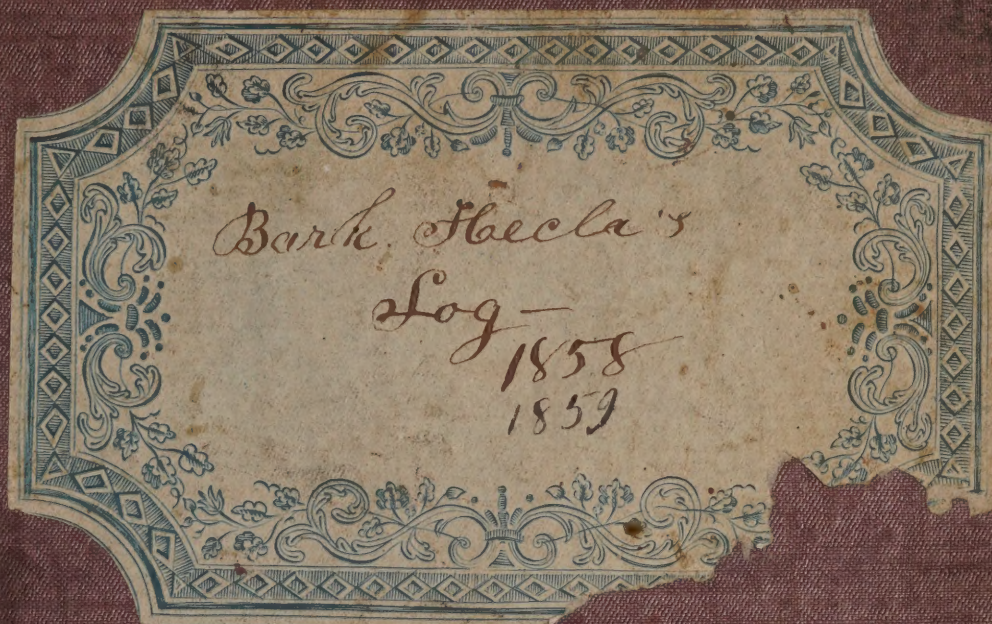 Bark Hecla's
Log —
1858
1859